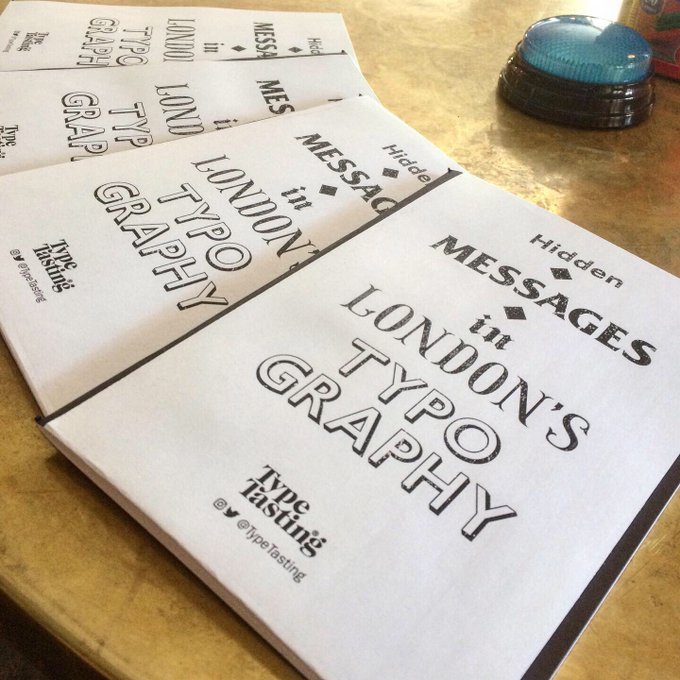 Hidden
MESSAGES
in
LONDON'S
TYPO
GRAPHY
Type
Tasting
@TypeTasting
Hidden
MESSAG
in
LONDON'S
TYPO
GRAPHY
Type
Tasting
@TypeTasting
Hidden
MES
in
LONDON
TYPO
GRAPHY
Type
Hidden
MESSA
in
LONDON
TYPO
GRAPHY
@TypeTasting